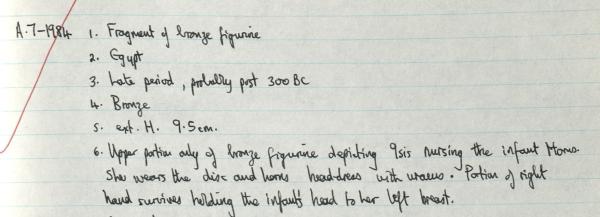 A.7-1984 1. Fragment of bronze figurine
2. Egypt
3. Late period, probably post 300 BC
4. Bronze
5. ext. H. 9.5cm.
6. Upper portion only of bronze figurine depicting Isis nursing the infant Horus.
She wears the disc and horns head-dress with uraeus. Portion of right
hand survives holding the infant's head to her left breast.